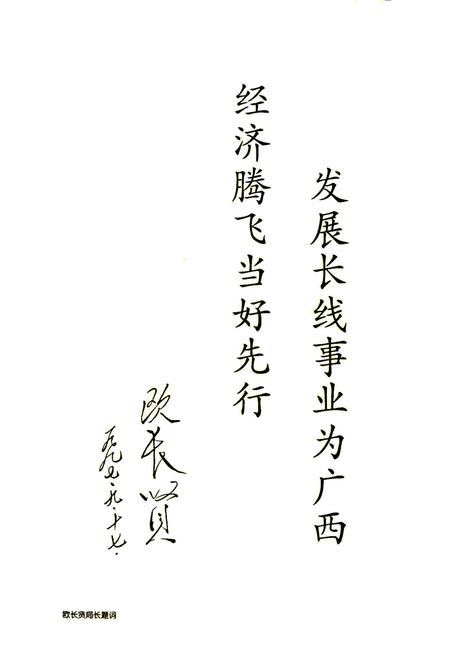 发展长线事业为广西
经济腾飞当好先行
欧长贤
一九九七.九.十七.
欧长贤局长题词